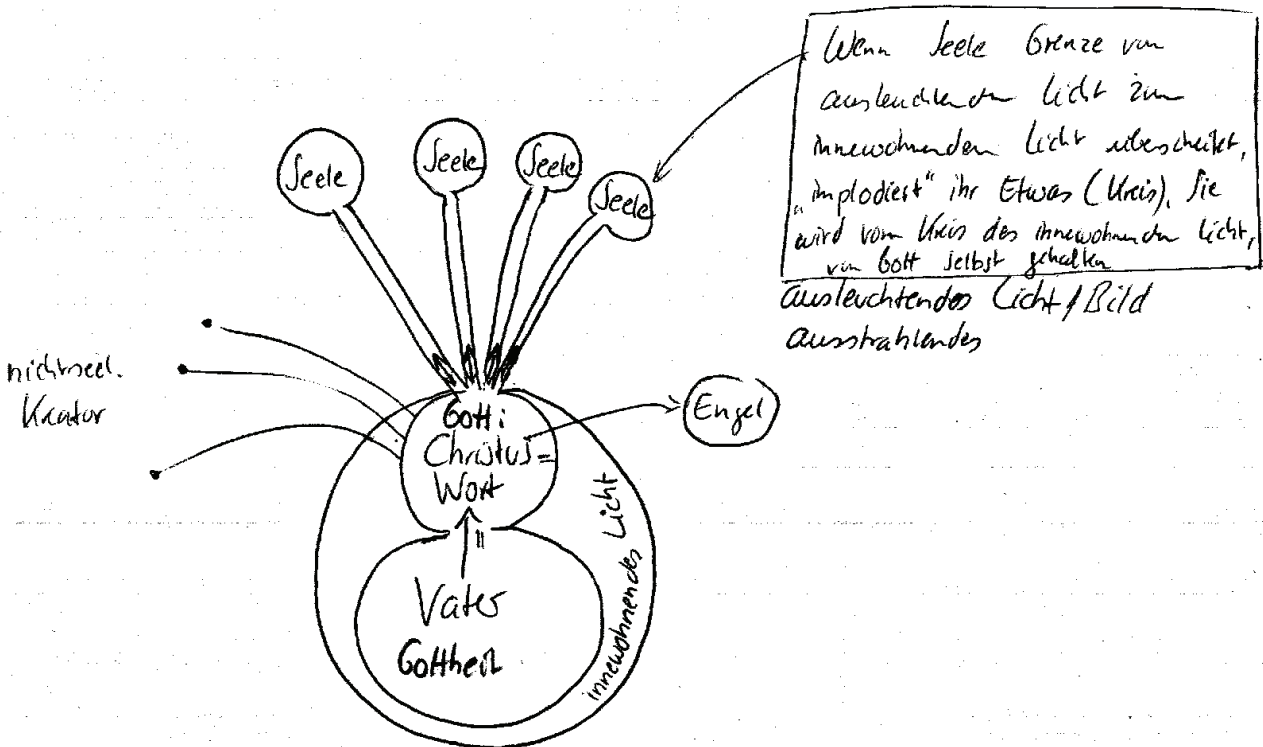 Wenn Seele Grenze von
ausleuchtendem Licht zum
innewohnenden Licht überschreitet,
„implodiert" ihr Etwas (Kreis). Sie
wird vom Kreis des innewohnenden Licht,
von Gott selbst gehalten
Seele
Seele
Seele
Seele
ausleuchtendes Licht / Bild
ausstrahlendes
nichtseel.
Kreatur
Gott:
Christus =
Wort
Engel
innewohnendes Licht
"
Vater
Gottheit